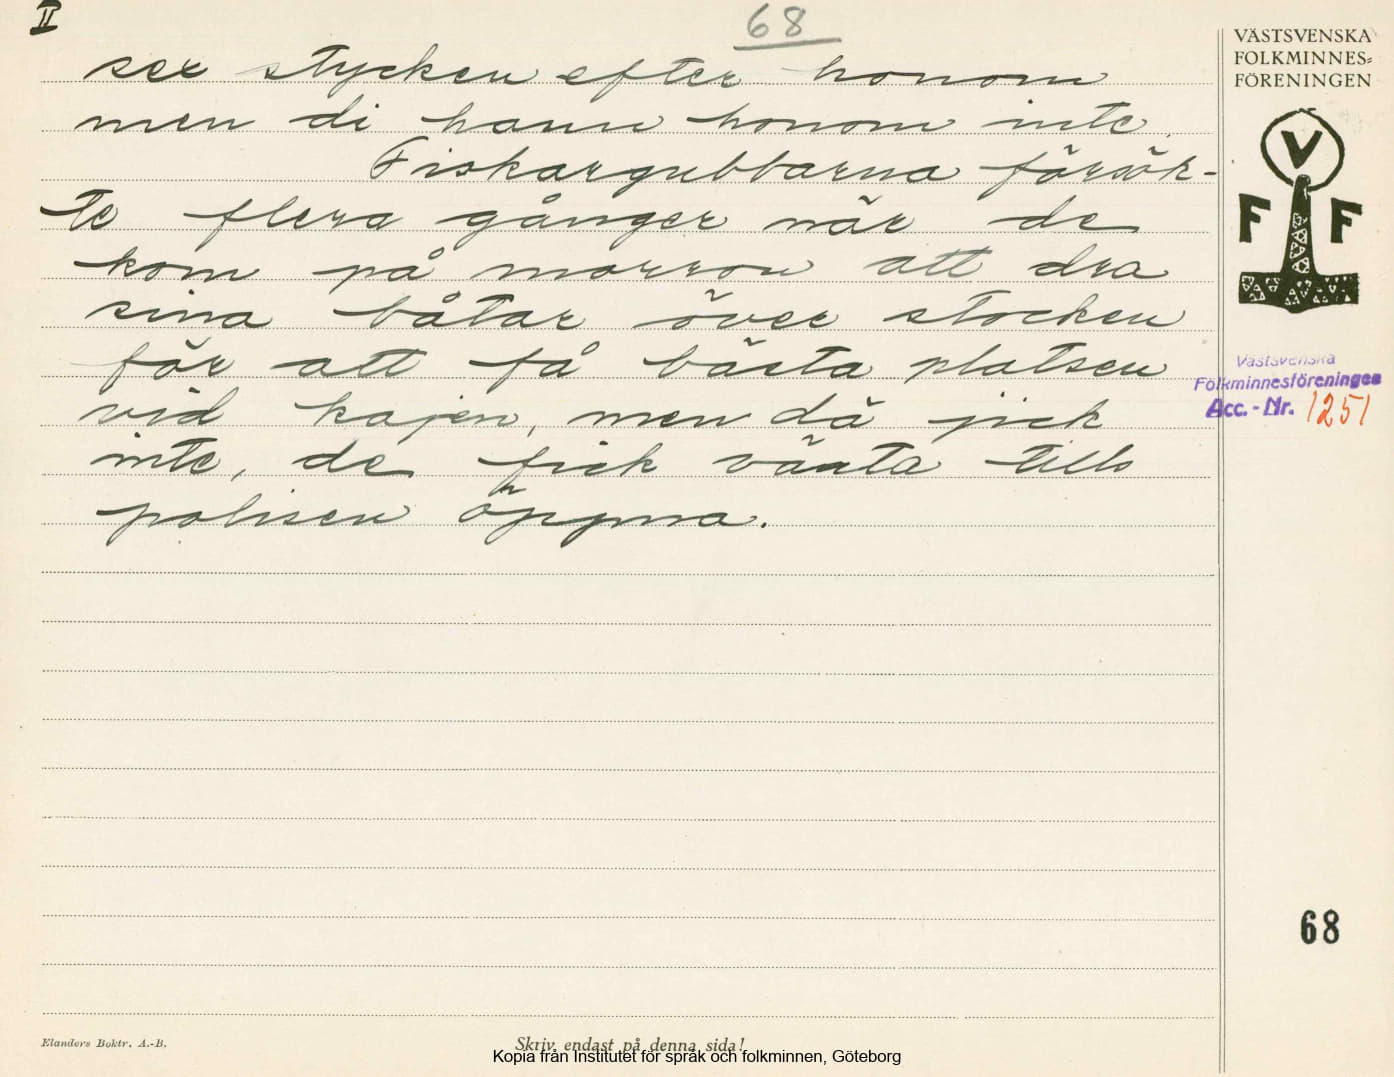 II
68
sex stycken efter honom
men di hann honom inte.
Fiskargubbarna försök-
te flera gånger när de
kom på morron att dra
sina båtar över stocken
för att få bästa platsen
vid kajen, men dä jick
inte, de fick vänta tills
polisen öppna.
VÄSTSVENSKA
FOLKMINNES-
FÖRENINGEN
V
F F
Västsvenska
Folkminnesföreningen
Acc.-Nr. 1251
68
Elanders Boktr. A.-B.
Skriv endast på denna sida!
Kopia från Institutet för språk och folkminnen, Göteborg